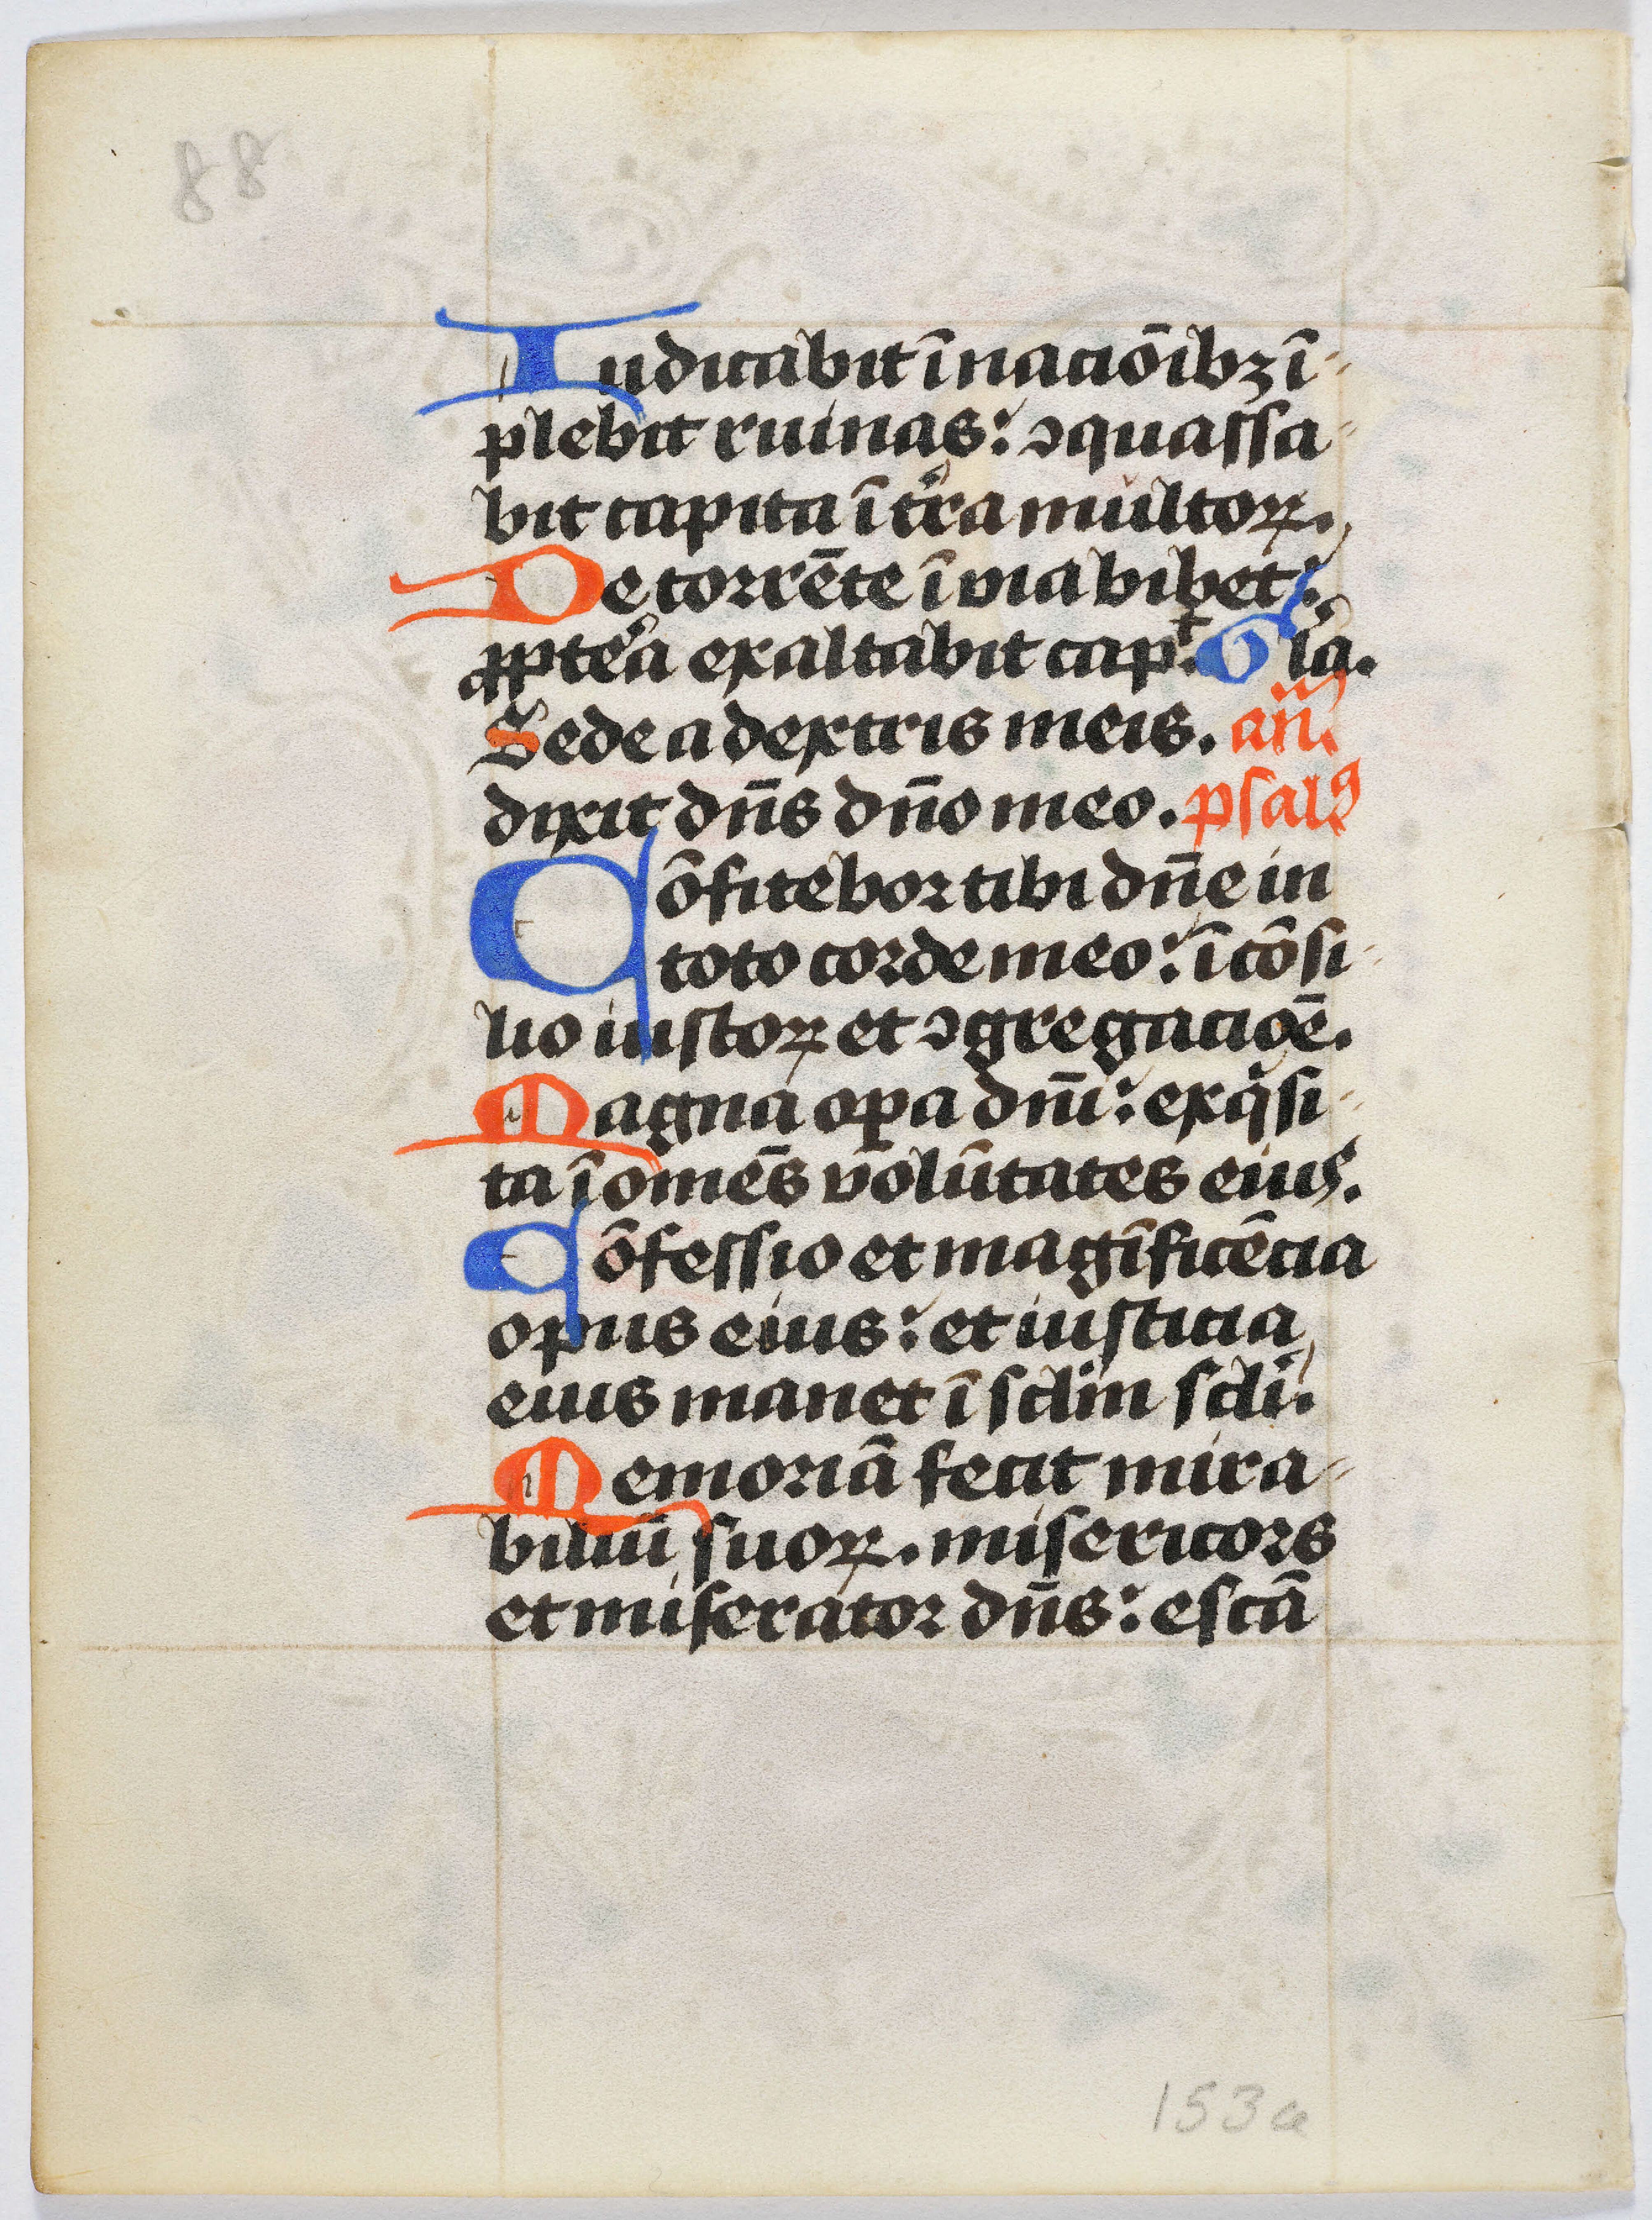 88
Iudicabit ī nacōibꝫ ī-
plebit ruinas: ꝯquassa-
bit capita ī t̄ra multoꝝ.
De torrēte ī via bibet:
ꝓpte͛a exaltabit cap⁹. Gl̄a.
Sede a dextris meis. an̄.
dixit dn̄s dn̄o meo. psal⁹
Cōfitebor tibi dn̄e in
toto corde meo: ī cōsi-
lio iustoꝝ et ꝯgregacioē.
Magna oꝑa dn̄i: exqͥsi-
ta ī omēs volūtates eius.
Cōfessio et magīficēcia
opus eius: et iusticia
eius manet ī sclm̄ scl̄i.
Memoriā fecit mira-
biliū suoꝝ. misericors
et miserator dn̄s: escā
153a